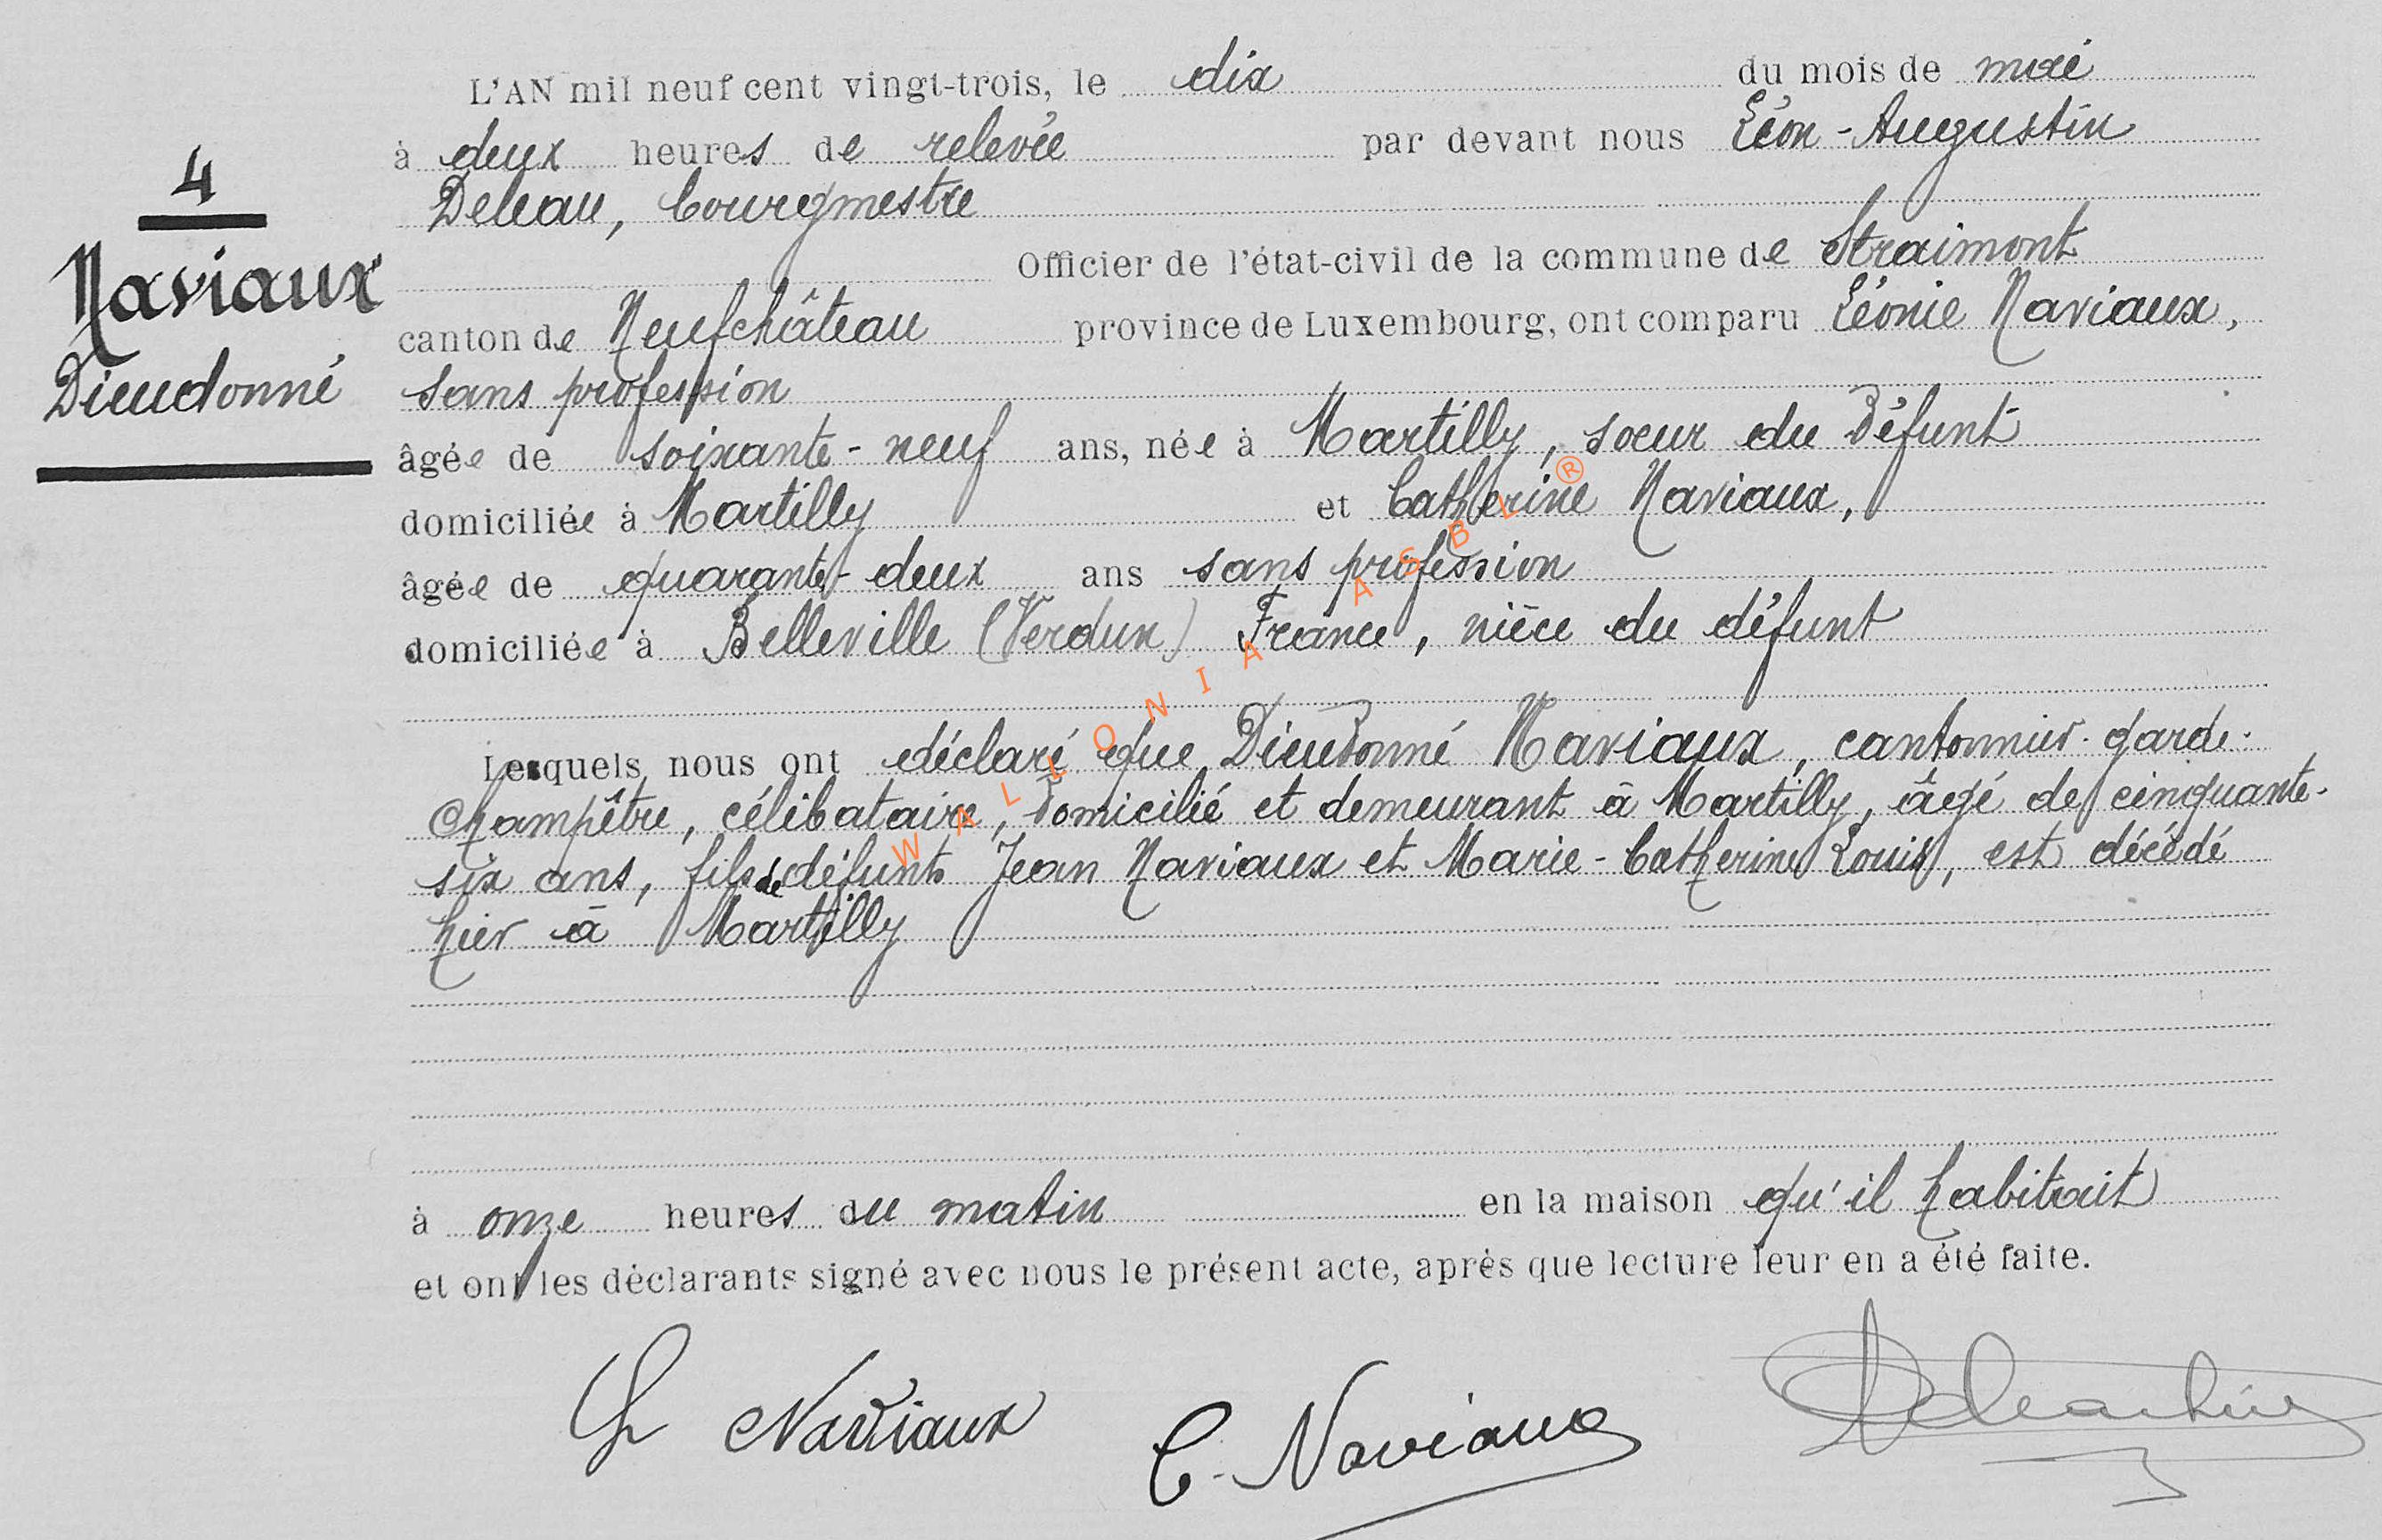 4
Naviaux
Dieudonné
L'AN mil neuf cent vingt-trois, le dix du mois de mai
à deux heures de relevée par devant nous Léon-Augustin
Deleau, bourgmestre
Officier de l'état-civil de la commune de Straimont
canton de Neufchâteau province de Luxembourg, ont comparu Léonie Naviaux,
sans profession
âgée de soixante-neuf ans, née à Martilly, soeur du Défunt
domiciliée à Martilly et Catherine Naviaux,
âgée de quarante-deux ans sans profession
domiciliée à Belleville (Verdun) France, nièce du défunt
Lesquels nous ont déclaré que Dieudonné Naviaux, cantonnier-garde-
champêtre, célibataire, domicilié et demeurant à Martilly, âgé de cinquante-
six ans, fils de défunts Jean Naviaux et Marie-Catherine Louis, est décédé
hier à Martilly
à onze heures du matin en la maison qu'il habitait
et ont les déclarants signé avec nous le présent acte, après que lecture leur en a été faite.
L Naviaux C. Naviaux
WALLONIA ASBL ®